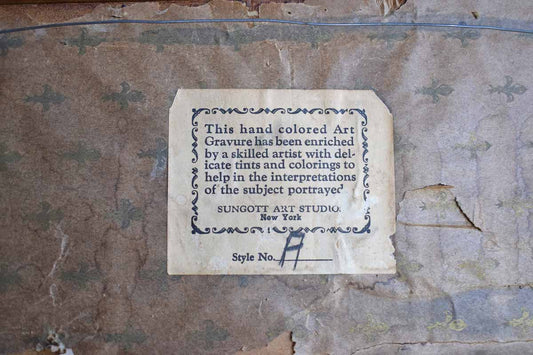 This hand colored Art
Gravure has been enriched
by a skilled artist with del-
icate tints and colorings to
help in the interpretations
of the subject portrayed
SUNGOTT ART STUDIO.
New York
Style No. A